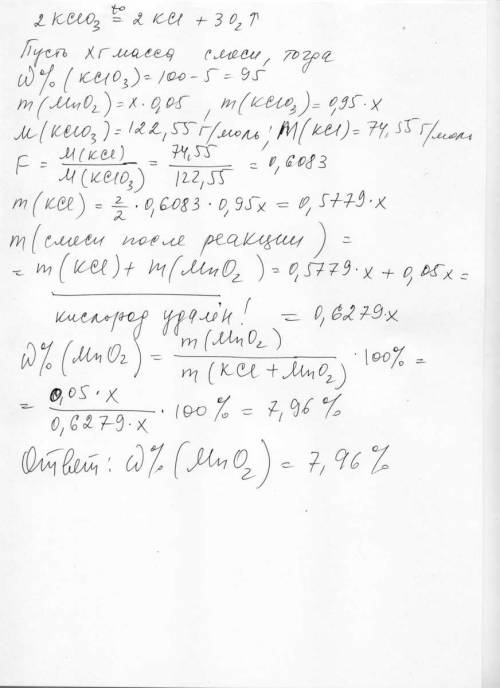 2KClO₃ t°= 2KCl + 3O₂↑
Пусть x г масса смеси, тогда
ω% (KClO₃) = 100 - 5 = 95
m(MnO₂) = x · 0,05 , m(KClO₃) = 0,95 · x
M(KClO₃) = 122,55 г/моль; M(KCl) = 74,55 г/моль
F = M(KCl) / M(KClO₃) = 74,55 / 122,55 = 0,6083
m(KCl) = 2/2 · 0,6083 · 0,95x = 0,5779 · x
m(смеси после реакции) =
= m(KCl) + m(MnO₂) = 0,5779 · x + 0,05x =
кислород удалён! = 0,6279 · x
ω% (MnO₂) = m(MnO₂) / m(KCl + MnO₂) · 100% =
= 0,05 · x / 0,6279 · x · 100% = 7,96%
Ответ: ω% (MnO₂) = 7,96%